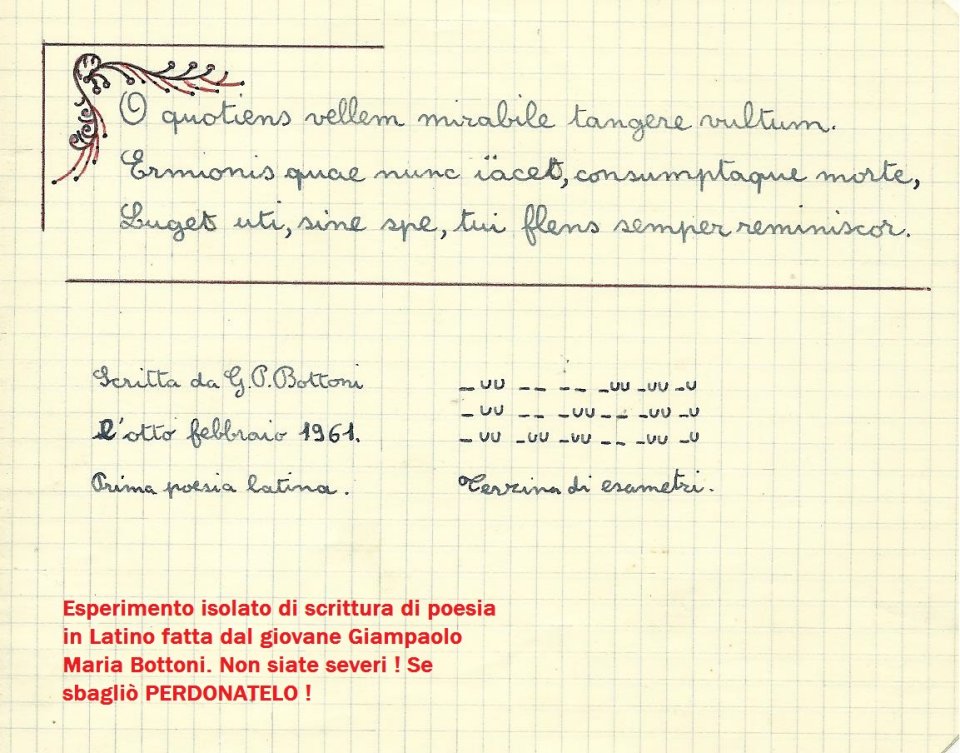 O quotiens vellem mirabile tangere vultum.
Ermionis quae nunc ïäcet, consumptaque morte,
Luget uti, sine spe, tui flens semper reminiscor.
Scritta da G.P.Bottoni
_ UU _ _ _ _ _UU _UU _U
l'otto febbraio 1961.
_ UU _ _ _UU _ _ _UU _U
_ UU _UU _UU _ _ _UU _U
Prima poesia latina.
Terzina di esametri.
Esperimento isolato di scrittura di poesia
in Latino fatta dal giovane Giampaolo
Maria Bottoni. Non siate severi ! Se
sbagliò PERDONATELO !